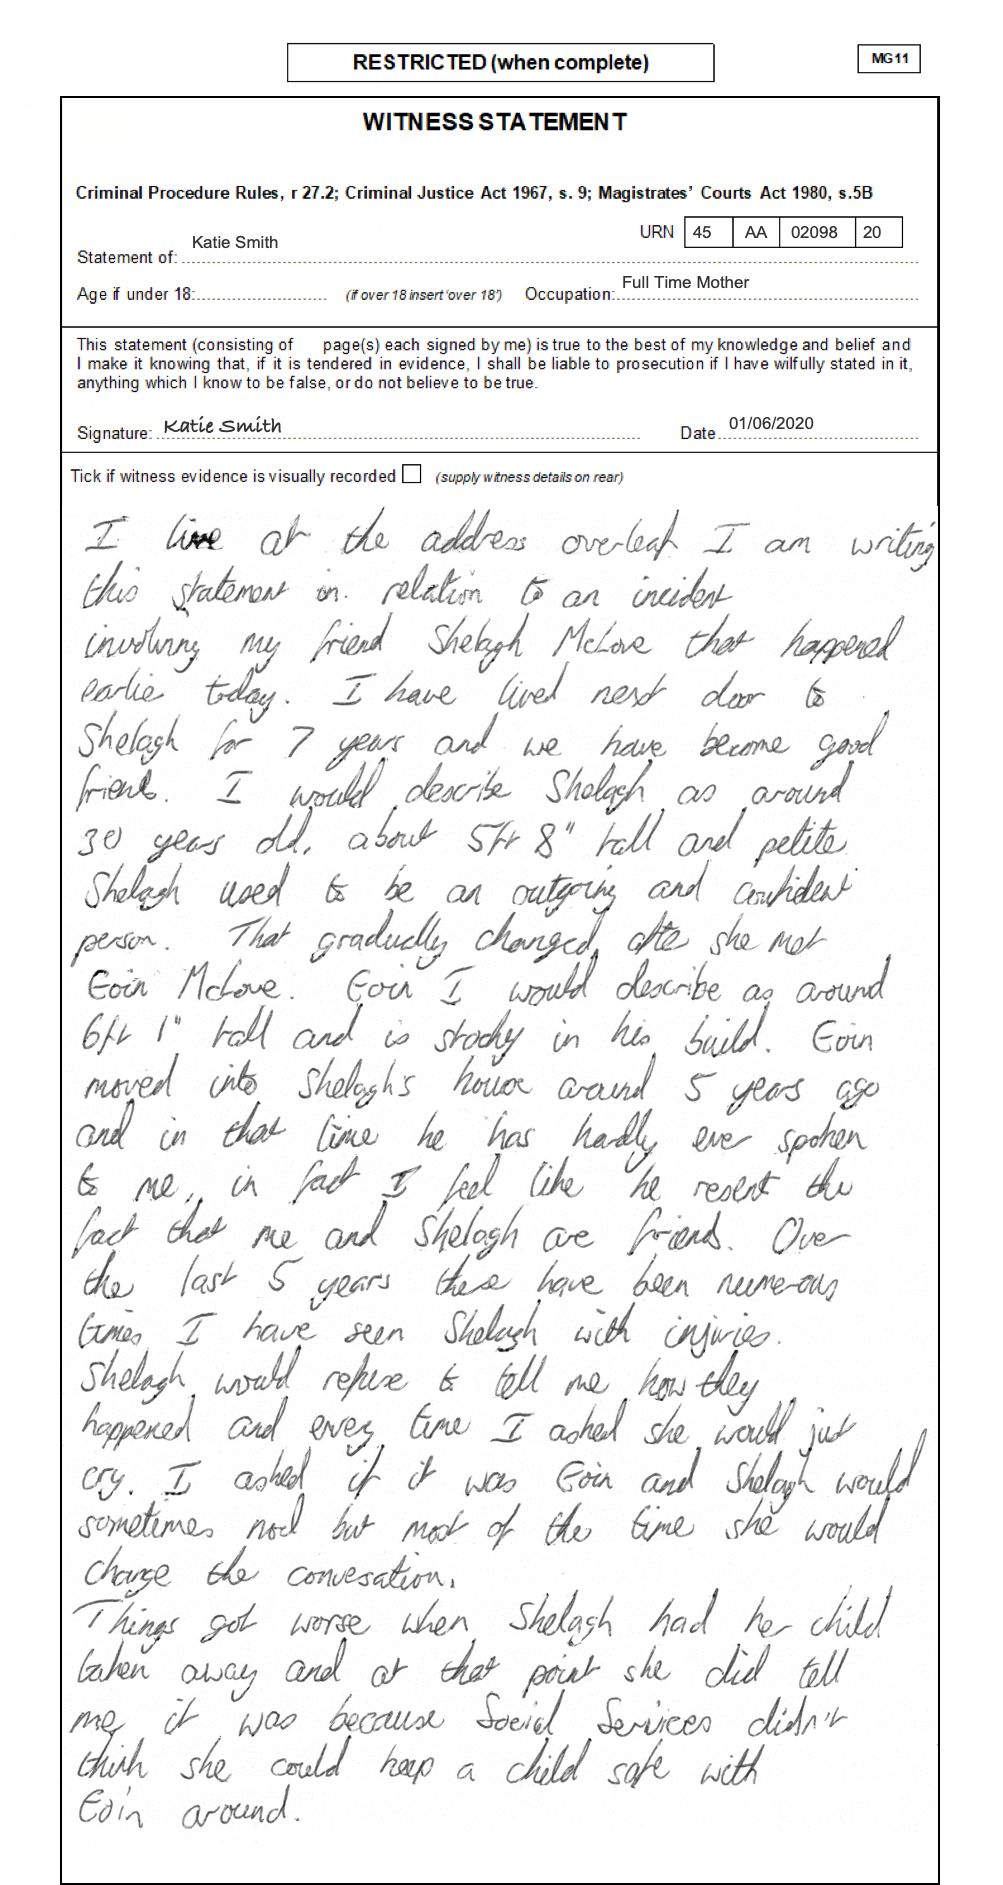 RESTRICTED (when complete)
MG11
WITNESS STATEMENT
Criminal Procedure Rules, r 27.2; Criminal Justice Act 1967, s. 9; Magistrates' Courts Act 1980, s.5B
URN 45 AA 02098 20
Statement of: Katie Smith
Age if under 18: (if over 18 insert 'over 18') Occupation: Full Time Mother
This statement (consisting of page(s) each signed by me) is true to the best of my knowledge and belief and
I make it knowing that, if it is tendered in evidence, I shall be liable to prosecution if I have wilfully stated in it,
anything which I know to be false, or do not believe to be true.
Signature: Katie Smith Date 01/06/2020
Tick if witness evidence is visually recorded (supply witness details on rear)
I live at the address overleaf I am writing
this statement in relation to an incident
involving my friend Shelagh McLove that happened
earlie today. I have lived next door to
Shelagh for 7 years and we have become good
friends. I would describe Shelagh as around
30 years old, about 5ft 8" tall and petite.
Shelagh used to be an outgoing and confident
person. That gradually changed after she met
Eoin McLove. Eoin I would describe as around
6ft 1" tall and is stocky in his build. Eoin
moved into Shelagh's house around 5 years ago
and in that time he has hardly ever spoken
to me, in fact I feel like he resent the
fact that me and Shelagh are friends. Over
the last 5 years there have been numerous
times I have seen Shelagh with injuries.
Shelagh would refuse to tell me how they
happened and every time I asked she would just
cry. I asked if it was Eoin and Shelagh would
sometimes nod but most of the time she would
change the conversation.
Things got worse when Shelagh had her child
taken away and at that point she did tell
me it was because Social Services didn't
think she could keep a child safe with
Eoin around.